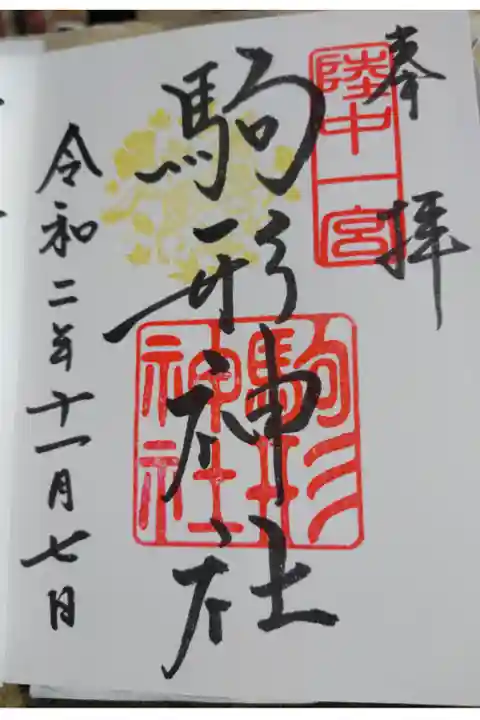 奉拝
陸中一宮
駒形神社
駒形
神社
令和二年十一月七日